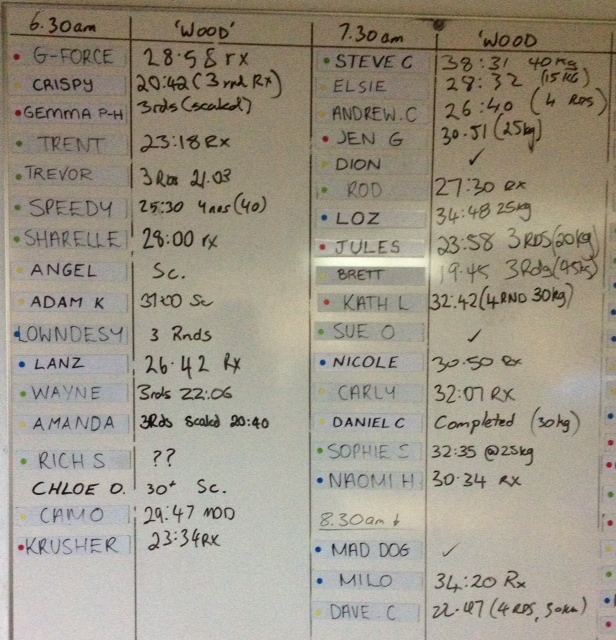 6.30am 'WOOD'
G-FORCE 28:58 rx
CRISPY 20:42 (3 rnd Rx)
GEMMA P-H 3rds (scaled)
TRENT 23:18 Rx
TREVOR 3 Rds 21.03
SPEEDY 25:30 4 (40)
SHARELLE 28:00 rx
ANGEL Sc.
ADAM K 31:00 Sc
LOWNDESY 3 Rnds
LANZ 26.42 Rx
WAYNE 3rds 22:06
AMANDA 3Rds scaled 20:40
RICH S ??
CHLOE O. 30+ Sc.
CAMO 29:47 MOD
KRUSHER 23:34 RX
7.30am 'WOOD
STEVE C 38:31 40kg
ELSIE 28:32 (15KG)
ANDREW.C 26:40 (4 RDS)
JEN G 30.51 (25kg)
DION ✓
ROD 27:30 rx
LOZ 34:48 25kg
JULES 23:58 3 RDS (20kg)
BRETT 19:45 3Rds (45kg)
KATH L 32:42 (4RND 30kg)
SUE O ✓
NICOLE 30.50 Rx
CARLY 32:07 RX
DANIEL C Completed (30kg)
SOPHIE S 32:35 @25kg
NAOMI H 30.34 RX
8.30am ↓
MAD DOG ✓
MILO 34:20 Rx
DAVE.C 22.47 (4 RDS,